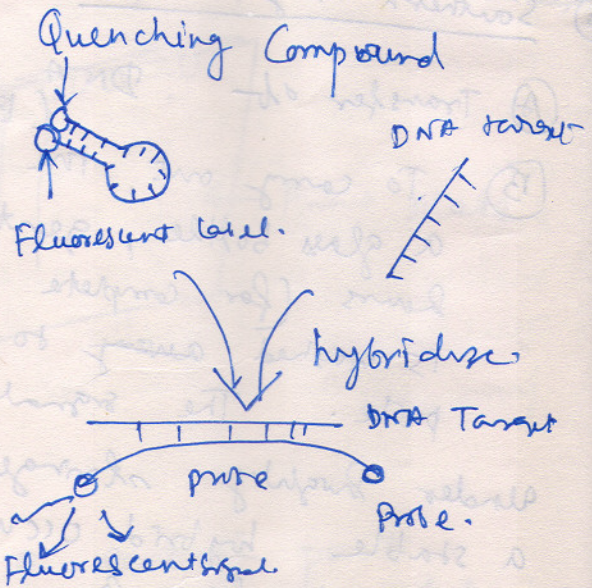 Quenching Compound
DNA target
Fluorescent label.
hybridize
DNA Target
probe
Probe.
Fluorescent signal